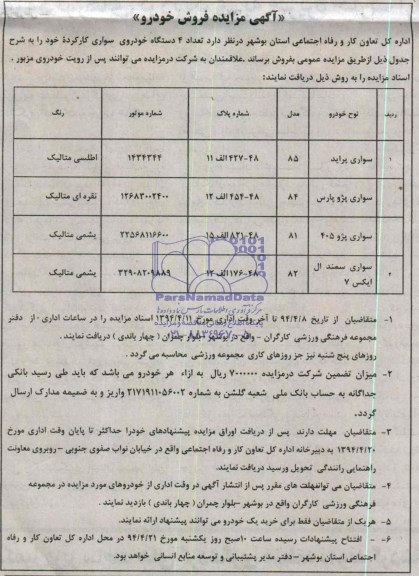 «آگهی مزایده فروش خودرو»
اداره کل تعاون کار و رفاه اجتماعی استان بوشهر درنظر دارد تعداد ۴ دستگاه خودروی سواری کارکردۀ خود را به شرح
جدول ذیل ازطریق مزایده عمومی بفروش برساند .علاقمندان به شرکت درمزایده می توانند پس از رویت خودروی مزبور ،
اسناد مزایده را به روش ذیل دریافت نمایند:
ردیف نوع خودرو مدل شماره پلاک شماره موتور رنگ
۱ سواری پراید ۸۵ ۴۸-۴۲۷ الف ۱۱ ۱۴۳۴۳۴۴ اطلسی متالیک
سواری پژو پارس ۸۴ ۴۸-۴۵۴ الف ۱۲ ۱۲۶۸۳۰۰۲۴۰۰ نقره ای متالیک
سواری پژو ۴۰۵ ۸۱ ۴۸-۸۲۱ الف ۱۵ ۲۲۵۶۸۱۱۶۶۰۰ یشمی متالیک
سواری سمند ال ایکس ۷ ۸۳ ۴۸-۱۷۶ الف ۱۲ ۳۲۹۰۸۲۰۹۸۸۹ یشمی متالیک
ParsNamadData
۱- متقاضیان از تاریخ ۹۴/۴/۸ تا آخر وقت اداری مورخ ۱۳۹۴/۴/۱۱ اسناد مزایده را در ساعات اداری ، از دفتر
مجموعه فرهنگی ورزشی کارگران - واقع در بوشهر -بلوار چمران ( چهار باندی ) دریافت نمایند .
روزهای پنج شنبه نیز جز روزهای کاری مجموعه ورزشی محاسبه می گردد .
۲- میزان تضمین شرکت درمزایده ۷۰۰۰۰۰۰ ریال به ازاء هر خودرو می باشد که باید طی رسید بانکی
جداگانه به حساب بانک ملی شعبه گلشن به شماره ۲۱۷۱۹۱۱۰۵۶۰۰۲ واریز و به ضمیمه مدارک ارسال
گردد.
۳- متقاضیان مهلت دارند پس از دریافت اوراق مزایده پیشنهادهای خودرا حداکثر تا پایان وقت اداری مورخ
۱۳۹۴/۴/۲۰ به دبیرخانه اداره کل تعاون کار و رفاه اجتماعی واقع در خیابان نواب صفوی جنوبی –روبروی معاونت
راهنمایی رانندگی تحویل ورسید دریافت نمایند.
۴- متقاضیان می توانند مهلت های مقرر پس از انتشار آگهی در وقت اداری از خودروهای مورد مزایده در مجموعه
فرهنگی ورزشی کارگران واقع در بوشهر –بلوار چمران ( چهار باندی ) بازدید نمایند .
۵- هریک از متقاضیان فقط برای خرید یک خودرو می توانند پیشنهاد ارائه نمایند.
۶- افتتاح پیشنهادات رسیده ساعت ۱۰صبح روز یکشنبه مورخ ۹۴/۴/۲۱ در محل اداره کل تعاون کار و رفاه
اجتماعی استان بوشهر – دفتر مدیر پشتیبانی و توسعه منابع انسانی خواهد بود.